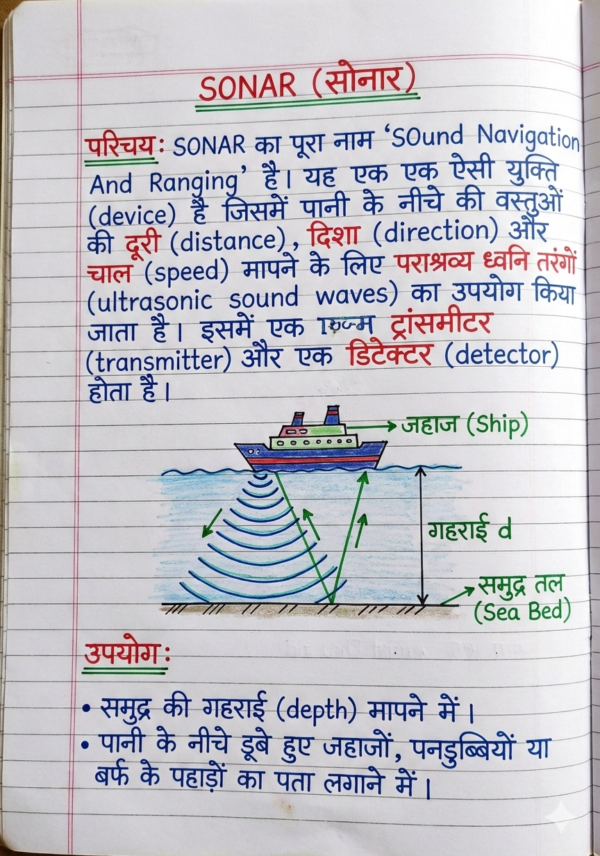 SONAR (सोनार)
परिचय: SONAR का पूरा नाम ‘SOund Navigation
And Ranging’ है। यह एक एक ऐसी युक्ति
(device) है जिसमें पानी के नीचे की वस्तुओं
की दूरी (distance), दिशा (direction) और
चाल (speed) मापने के लिए पराश्रव्य ध्वनि तरंगों
(ultrasonic sound waves) का उपयोग किया
जाता है। इसमें एक ट्रांसमीटर
(transmitter) और एक डिटेक्टर (detector)
होता है।
जहाज (Ship)
गहराई d
समुद्र तल
(Sea Bed)
उपयोग:
• समुद्र की गहराई (depth) मापने में।
• पानी के नीचे डूबे हुए जहाजों, पनडुब्बियों या
बर्फ के पहाड़ों का पता लगाने में।